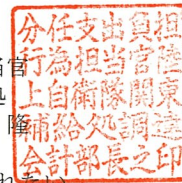 官
処
隆
分任支出負担
行為担当官陸
上自衛隊関東
補給処調達
会計部長之印